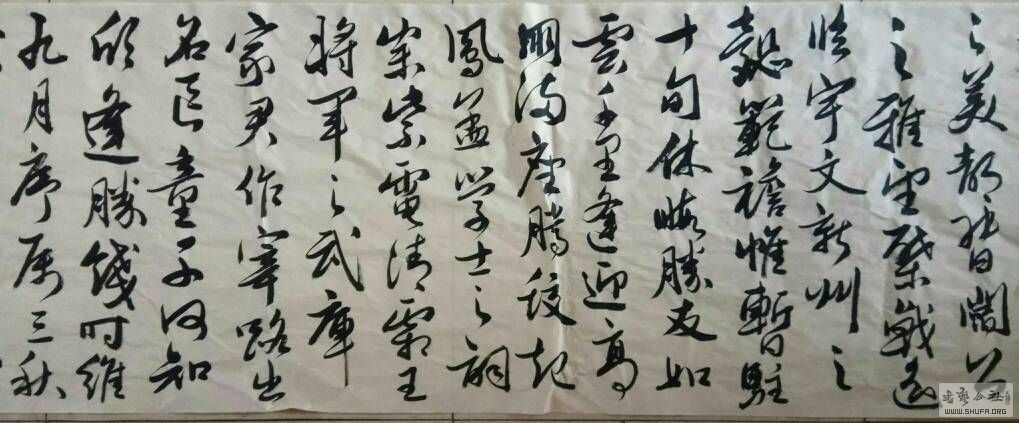 之美都督閣公
之雅望棨戟遥
临宇文新州之
懿範襜帷暫駐
十旬休暇勝友如
雲千里逢迎高
朋满座騰蛟起
鳳孟学士之詞
宗紫電清霜王
将军之武庫
家君作宰路出
名区童子何知
躬逢勝餞时維
九月序属三秋
书艺公社
WWW.SHUFA.ORG